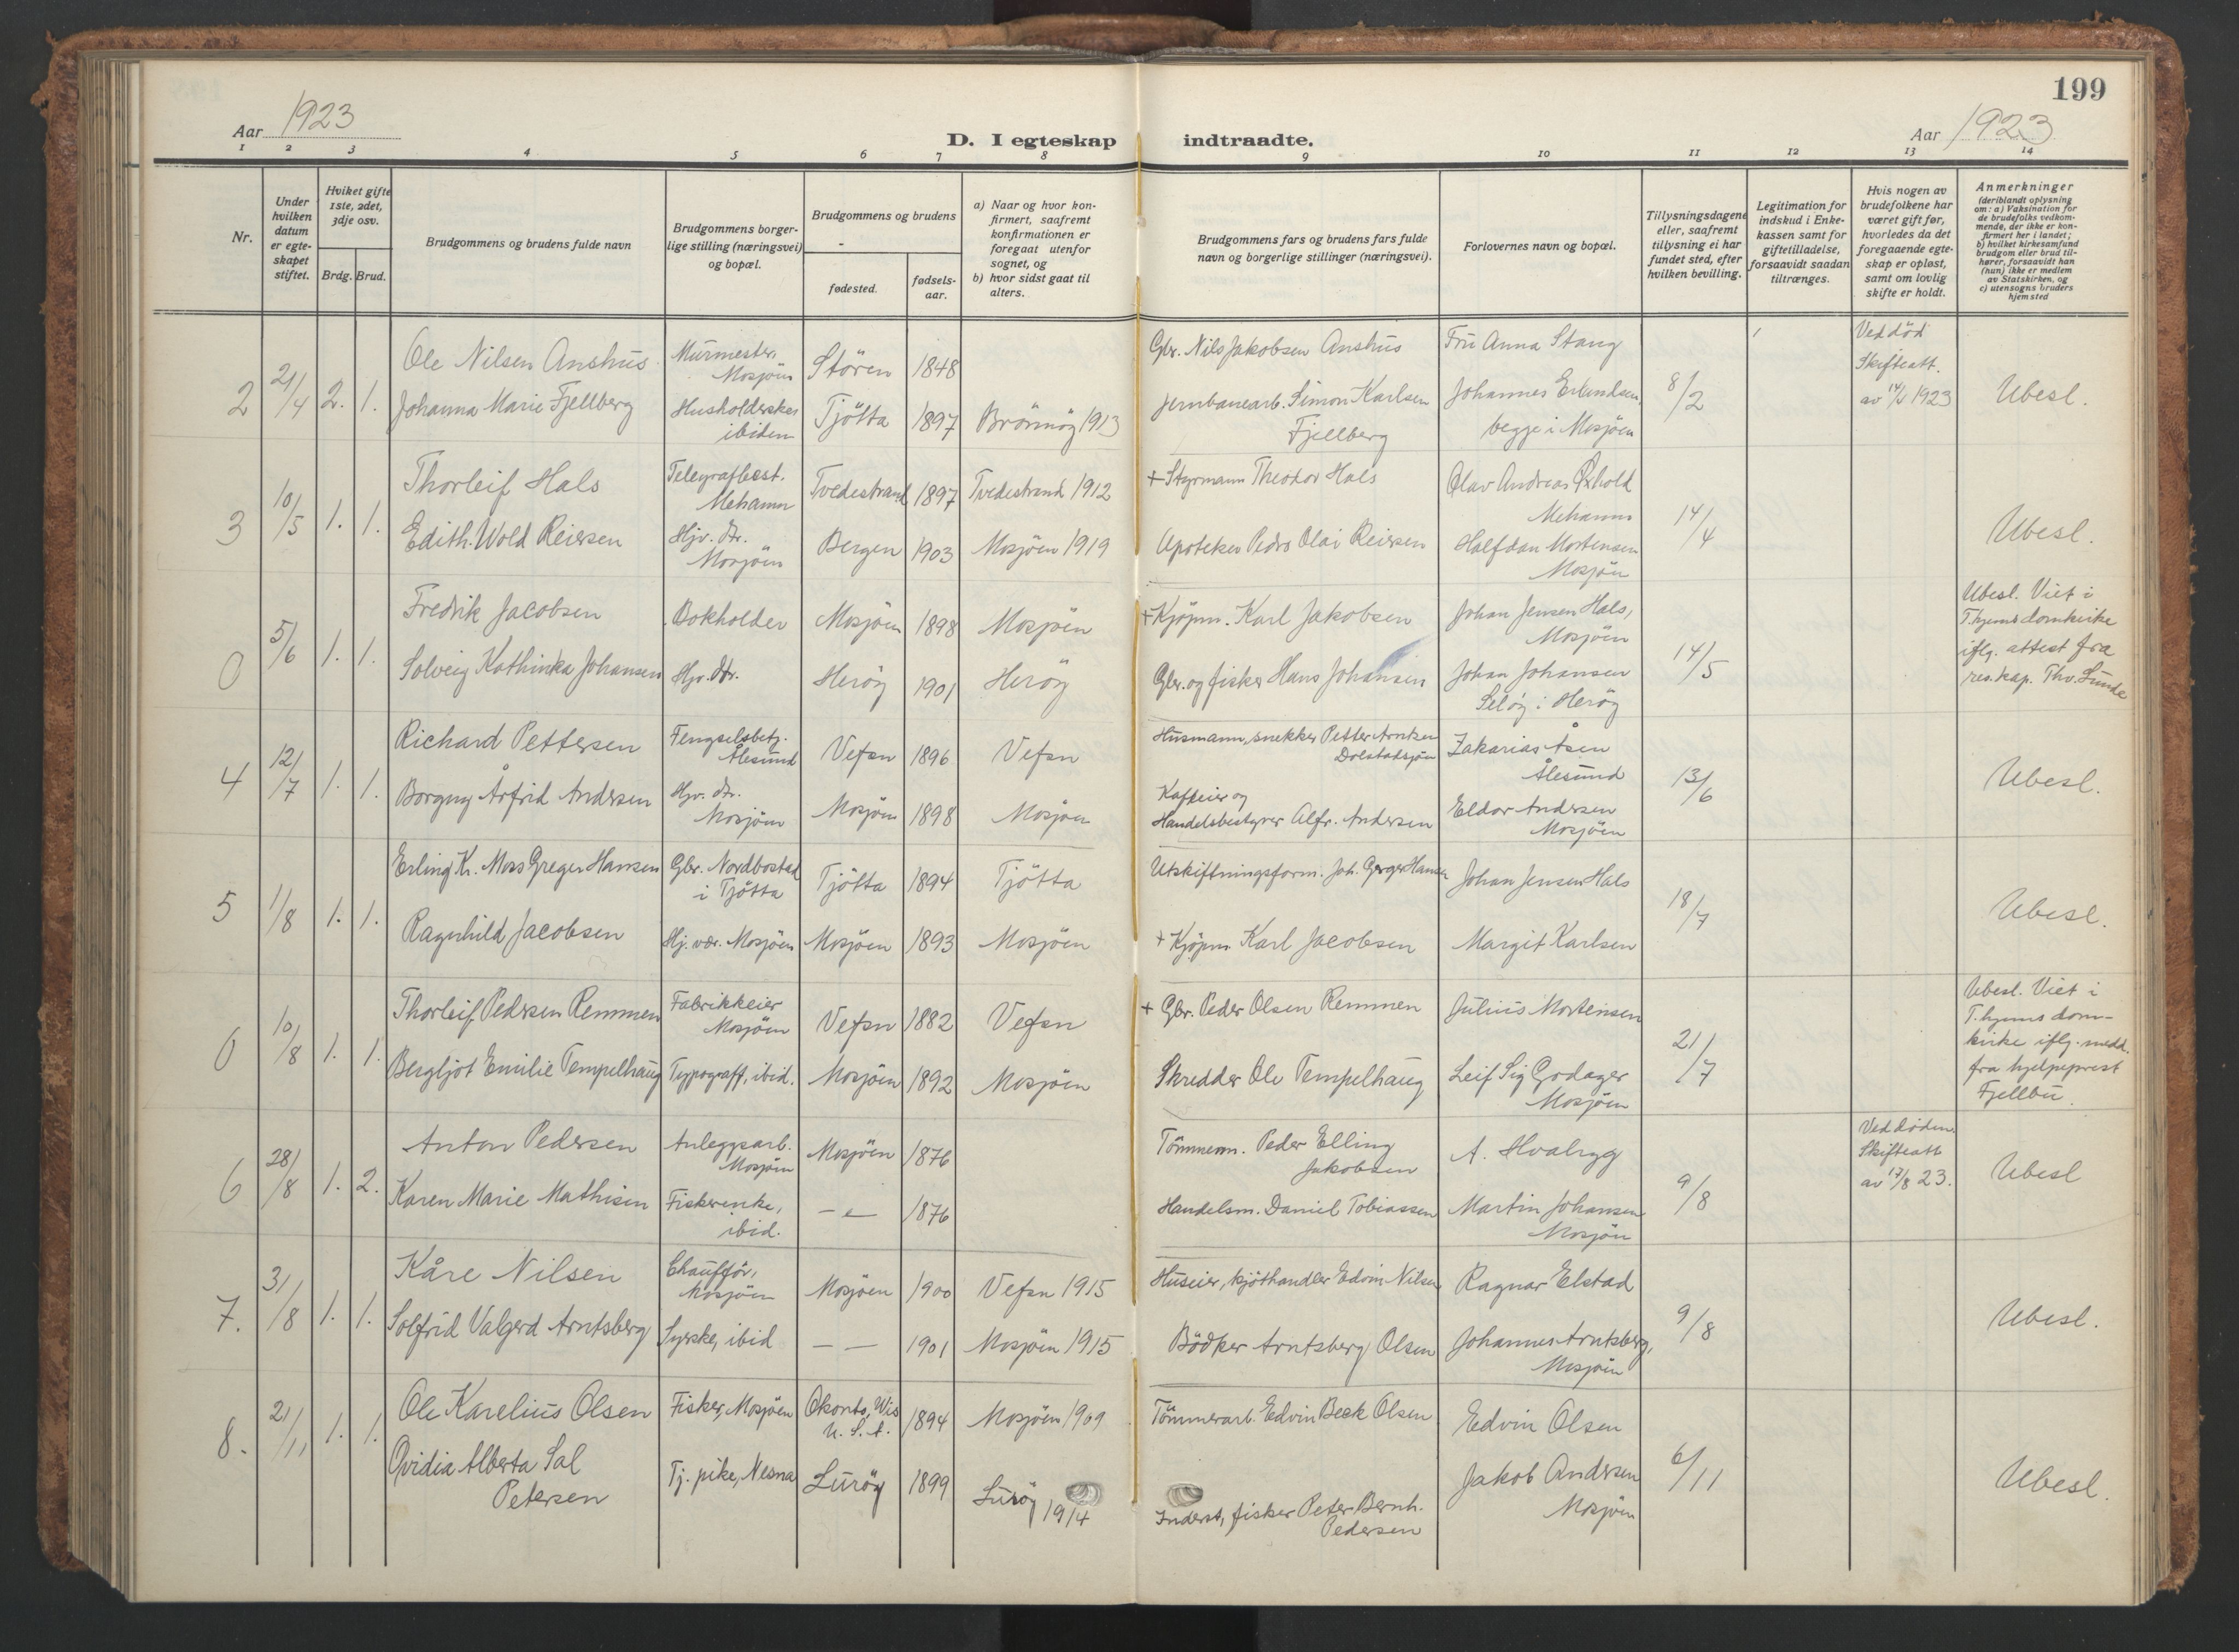 199
Aar 1923
D. I egteskap indtraadte.
Aar 1923
1 2 3 4 5 6 7 8 9 10 11 12 13 14
Nr.
Under hvilken datum er egte-skapet stiftet.
Hviket gifte 1ste, 2det, 3dje osv.
Brdg. Brud.
Brudgommens og brudens fulde navn
Brudgommens borger-lige stilling (næringsvei) og bopæl.
Brudgommens og brudens
fødested.
fødsels-aar.
a) Naar og hvor kon-firmert, saafremt konfirmationen er foregaat utenfor sognet, og
b) hvor sidst gaat til alters.
Brudgommens fars og brudens fars fulde navn og borgerlige stillinger (næringsvei).
Forlovernes navn og bopæl.
Tillysningsdagene eller, saafremt tillysning ei har fundet sted, efter hvilken bevilling.
Legitimation for indskud i Enke-kassen samt for giftetilladelse, forsaavidt saadan tiltrænges.
Hvis nogen av brudefolkene har været gift før, hvorledes da det foregaaende egte-skap er opløst, samt om lovlig skifte er holdt.
Anmerkninger (deriblandt oplysning om: a) Vaksination for de brudefolks vedkom-mende, der ikke er kon-firmert her i landet; b) hvilket kirkesamfund brudgom eller brud til-hører, forsaavidt han (hun) ikke er medlem av Statskirken, og c) utensogns bruders hjemsted
2 21/4 2. 1.
Ole Nilsen Anshus Murmester, Mosjöen Stören 1848
Gbr. Nils Jakobsen Anshus Fru Anna Stang
Johanna Marie Fjellberg Husholderske ibidem Tjötta 1897 Brönnöy 1913
Jernbanearb. Simon Karlsen Fjellberg Johannes Erlandsen begge i Mosjöen
8/2
Ved död Skifteatt. av 1923
Ubesl.
3 10/5 1. 1.
Thorleif Hals Telegrafbest. Mehamn Tvedestrand 1897 Tvedestrand 1912
+ Styrmann Theodor Hals Olav Andreas Mehamn
Edith Wold Reiersen Hjv. dtr. Mosjöen Bergen 1903 Mosjöen 1919
Apoteker Pedro Olai Reiersen Halfdan Mortensen Mosjöen
14/4
Ubesl.
0 5/6 1. 1.
Fredrik Jacobsen Bokholder Mosjöen 1898 Mosjöen
+ Kjøpm. Karl Jakobsen Johan Jensen Hals, Mosjöen
Solveig Kathinka Johansen Hjv. dtr. Heröy 1901 Heröy
Gbr. og fisker Hans Johansen Johan Johansen Seløy i Herøy
14/5
Ubesl. Viet i T.hjems domkirke iflg. attest fra res. kap. Thv. Sunde
4 12/7 1. 1.
Richard Pettersen Fengselsbetj. Ålesund Vefsn 1896 Vefsn
Husmann, snekker Petter Arntsen Dolstadsjøen Zakarias Åsen Ålesund
Borgny Årfrid Andersen Hjv. dtr. Mosjöen Mosjöen 1898 Mosjöen
Kafeeier og Handelsbestyrer Alfr. Andersen Eldor Andersen Mosjöen
13/6
Ubesl.
5 1/8 1. 1.
Erling Kr. Moss Greger Hansen Gbr. Nordbostad i Tjötta Tjötta 1894 Tjötta
Utskiftningsform. Joh. Greger Hansen Johan Jensen Hals
Ragnhild Jacobsen Hj. vær. Mosjöen Mosjöen 1893 Mosjöen
+ Kjöpm Karl Jacobsen Margit Karlsen
18/7
Ubesl.
0 10/8 1. 1.
Thorleif Pedersen Remmen Fabrikkeier Mosjöen Vefsn 1882 Vefsn
+ Gbr. Peder Olsen Remmen Julius Mortensen
Bergljot Emilie Tempelhaug Typograff, ibid. Mosjöen 1892 Mosjöen
Skredder Ole Tempelhaug Leif Sig Godager Mosjöen
21/7
Ubesl. Viet i T.hjems dom-kirke iflg. medd. fra hjelpeprest Fjellbu.
6 28/8 1. 2.
Anton Pedersen Anleggsarb. Mosjöen Mosjöen 1876
Tömmerm. Peder Elling Jakobsen A. Hvalryg
Karen Marie Mathisen Fiskerenke, ibid. — „ — 1876
Handelsm. Daniel Tobiassen Martin Johansen Mosjöen
9/8
Ved döden. Skifteatt av 17/8 23.
Ubesl
7. 31/8 1. 1.
Kåre Nilsen Chaufför, Mosjöen Mosjöen 1900 Vefsn 1915
Huseier, kjöthandler Edvin Nilsen Ragnar Elstad
Solfrid Valgerd Arntsberg Syerske, ibid — — 1901 Mosjöen 1915
Bödker Arntsberg Olsen Johannes Arntsberg, Mosjöen
9/8
Ubesl.
8. 21/11 1. 1.
Ole Karelius Olsen Fisker, Mosjöen Okonto, Wis U. S. A. 1894 Mosjöen 1909
Tömmerarb. Edvin Beck Olsen Edvin Olsen
Ovidia Alberta Sal Petersen Tj. pike, Nesna Luröy 1899 Luröy 1914
Inderst, fisker Peter Bernh. Pedersen Jakob Andersen Mosjöen
6/11
Ubesl.